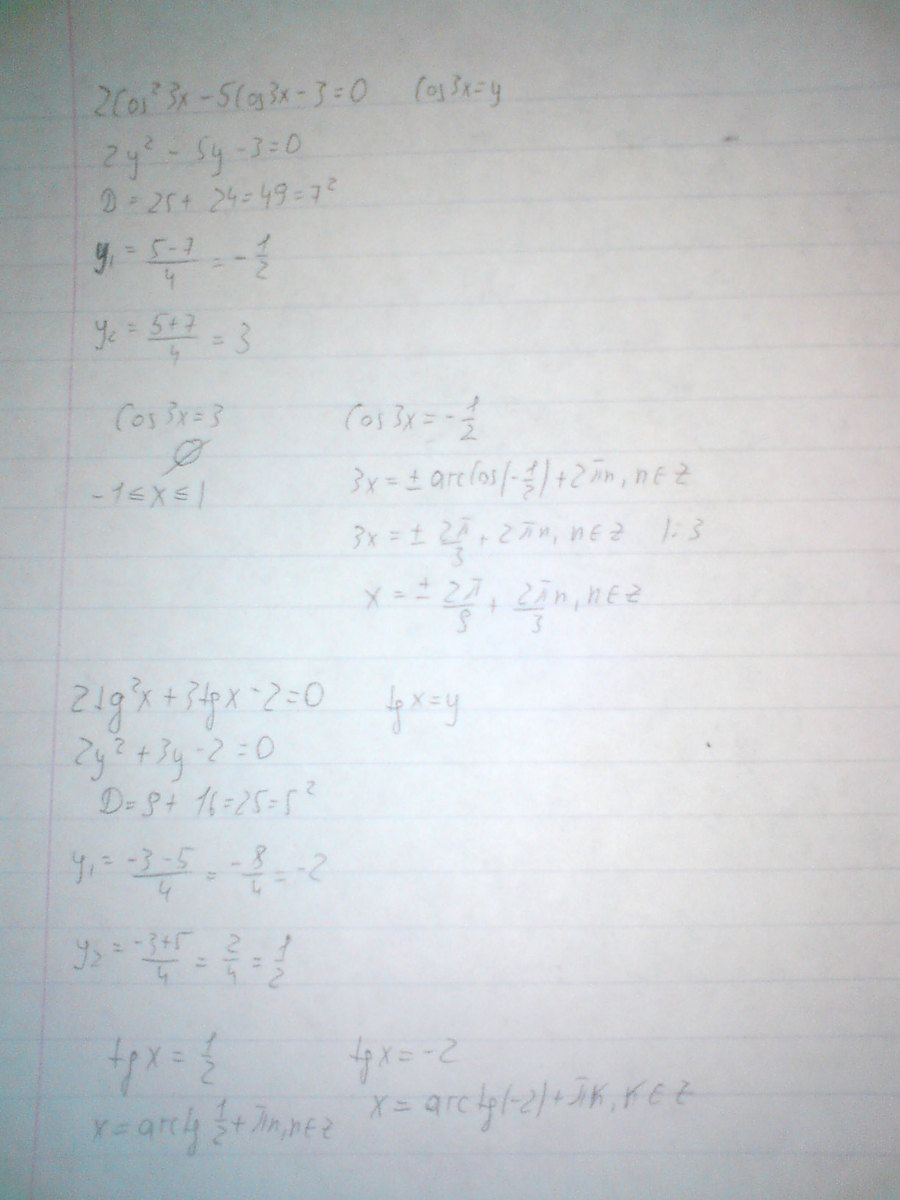 2Cos²3x - 5Cos3x - 3 = 0    Cos3x = y
2y² - 5y - 3 = 0
D = 25 + 24 = 49 = 7²
y₁ = (5-7)/4 = -1/2
y₂ = (5+7)/4 = 3
Cos3x = 3    Cos3x = -1/2
∅
-1 ≤ x ≤ 1    3x = ± arcCos(-1/2) + 2πn, n∈Z
3x = ± 2π/3 + 2πn, n∈Z  |:3
x = ± 2π/9 + 2πn/3, n∈Z
2tg²x + 3tgx - 2 = 0    tgx = y
2y² + 3y - 2 = 0
D = 9 + 16 = 25 = 5²
y₁ = (-3-5)/4 = -8/4 = -2
y₂ = (-3+5)/4 = 2/4 = 1/2
tgx = 1/2    tgx = -2
x = arctg 1/2 + πn, n∈Z    x = arctg(-2) + πk, k∈Z